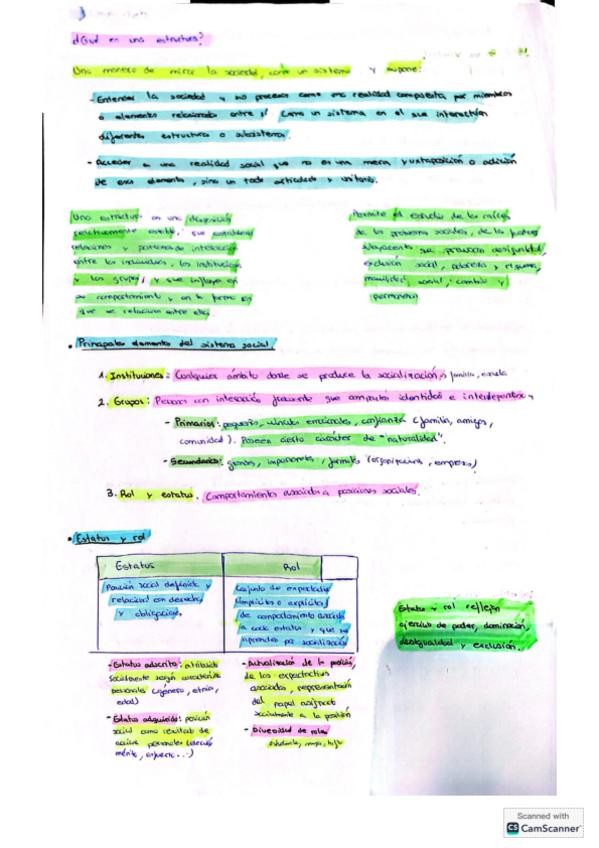 ¿Qué es una estructura?
Una manera de mirar la sociedad, como un sistema y supone:
- Entender la sociedad y sus procesos como una realidad compuesta por miembros
o elementos relacionados entre sí. Como un sistema en el que interactúan
diferentes estructuras o subsistemas.
- Acceder a una realidad social que no es una mera yuxtaposición o adición
de esos elementos, sino un todo articulado y unitario.
Una estructura es una disposición
relativamente estable, que establece
relaciones y patrones de interacción
entre los individuos, las instituciones
y los grupos, y que influye en
su comportamiento y en la forma en
que se relacionan entre ellos.
Permite el estudio de las raíces
de los problemas sociales, de las
subyacentes que provocan desigualdad,
exclusión social, pobreza y riqueza,
movilidad social, cambio y
permanencia
• Principales elementos del sistema social
1. Instituciones: Cualquier ámbito donde se produce la socialización, familia, escuela
2. Grupos: Personas con interacción frecuente que comparten identidad e interdependencia
- Primarios: pequeños, vínculos emocionales, confianza (familia, amigos,
comunidad). Poseen cierto carácter de "naturalidad".
- Secundarios: grandes, impersonales, formales (organizaciones, empresa)
3. Rol y estatus. Comportamientos asociados a posiciones sociales.
• Estatus y rol
Estatus Rol
Posición social definida y
relacional con derechos
y obligaciones.
Conjunto de expectativas
implícitas o explícitas
de comportamiento asociado
a cada estatus y que se
aprenden por socialización
Estatus y rol reflejan
ejercicio de poder, dominación,
desigualdad y exclusión.
- Estatus adscrito: atribuido
socialmente según características
personales (género, etnia,
edad)
- Estatus adquirido: posición
social como resultado de
acciones personales (
mérito, esfuerzo...)
- Actualización de la posición,
de las expectativas
asociadas, representación
del papel asignado
socialmente a la posición
- Diversidad de roles
estudiante, hijo
Scanned with
CS CamScanner